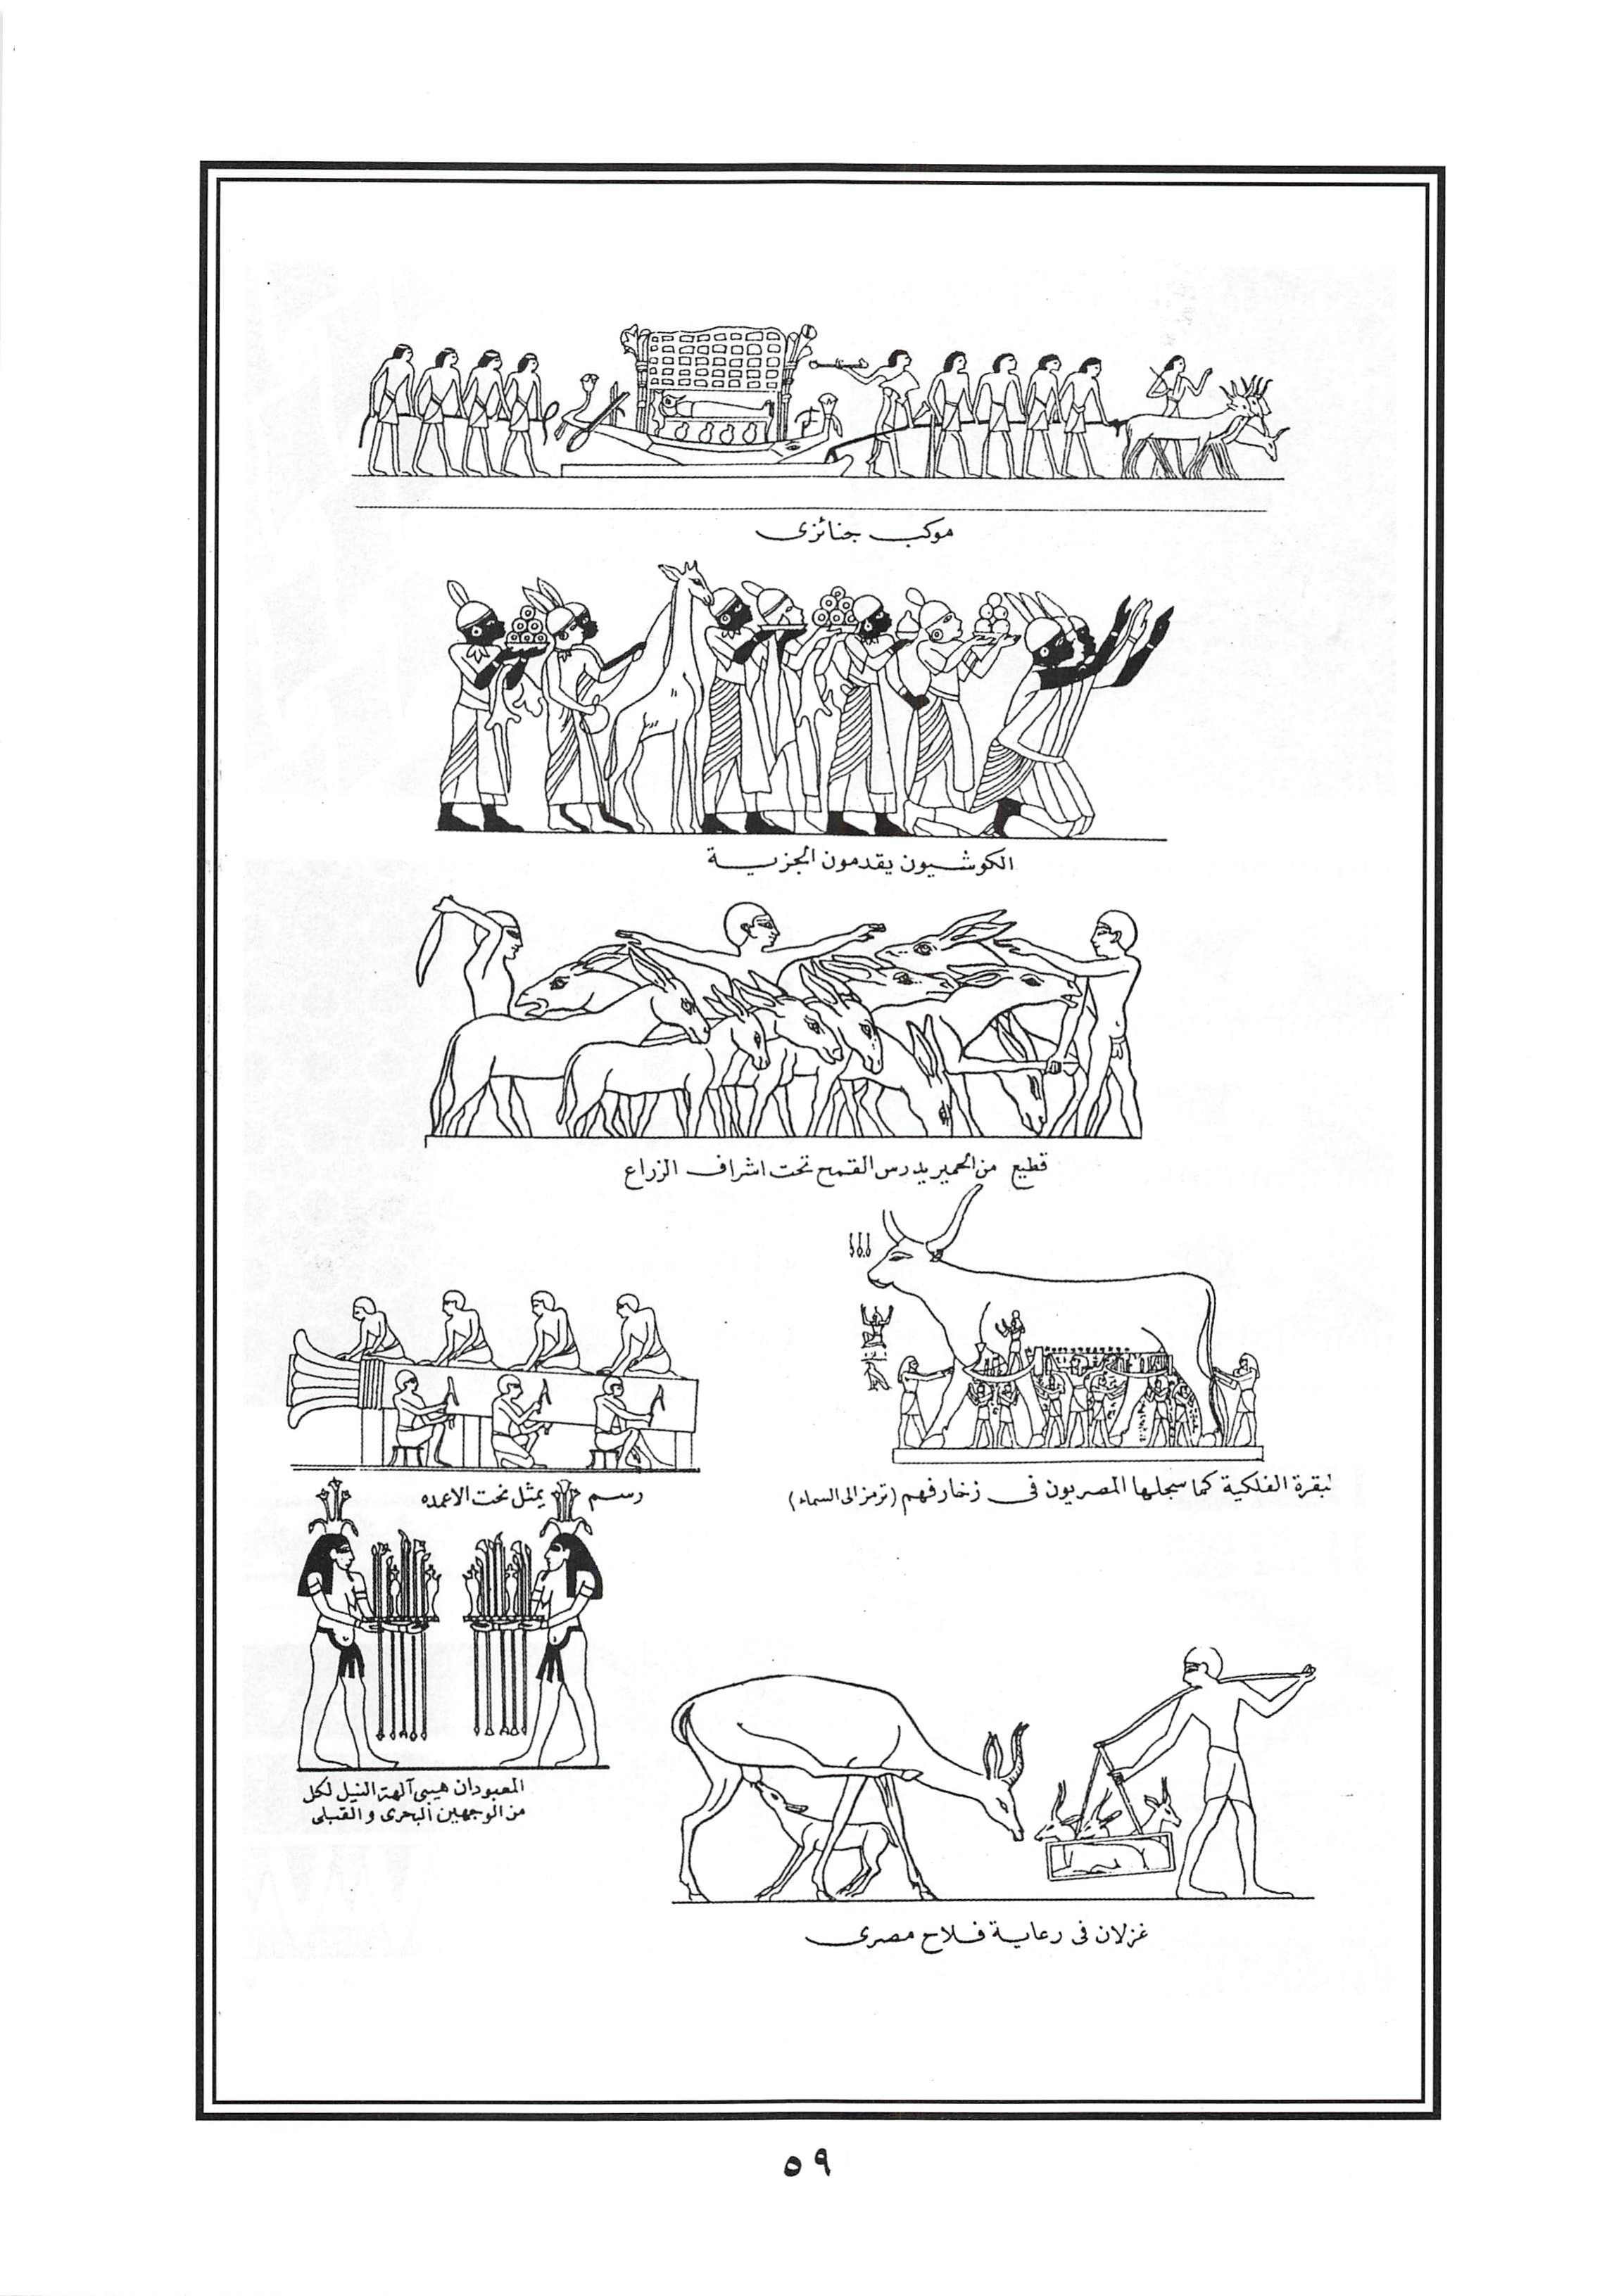 موكب جنائزى
الكوشيون يقدمون الجزية
قطيع من الحمير يدرس القمح تحت اشراف الزراع
لبقرة الفلكية كما سجلها المصريون فى زخارفهم (ترمز الى السماء)
رسم يمثل نحت الاعمده
المعبودان هيبى آلهة النيل لكل
من الوجهين البحرى و القبلى
غزلان فى رعاية فلاح مصرى
٥٩